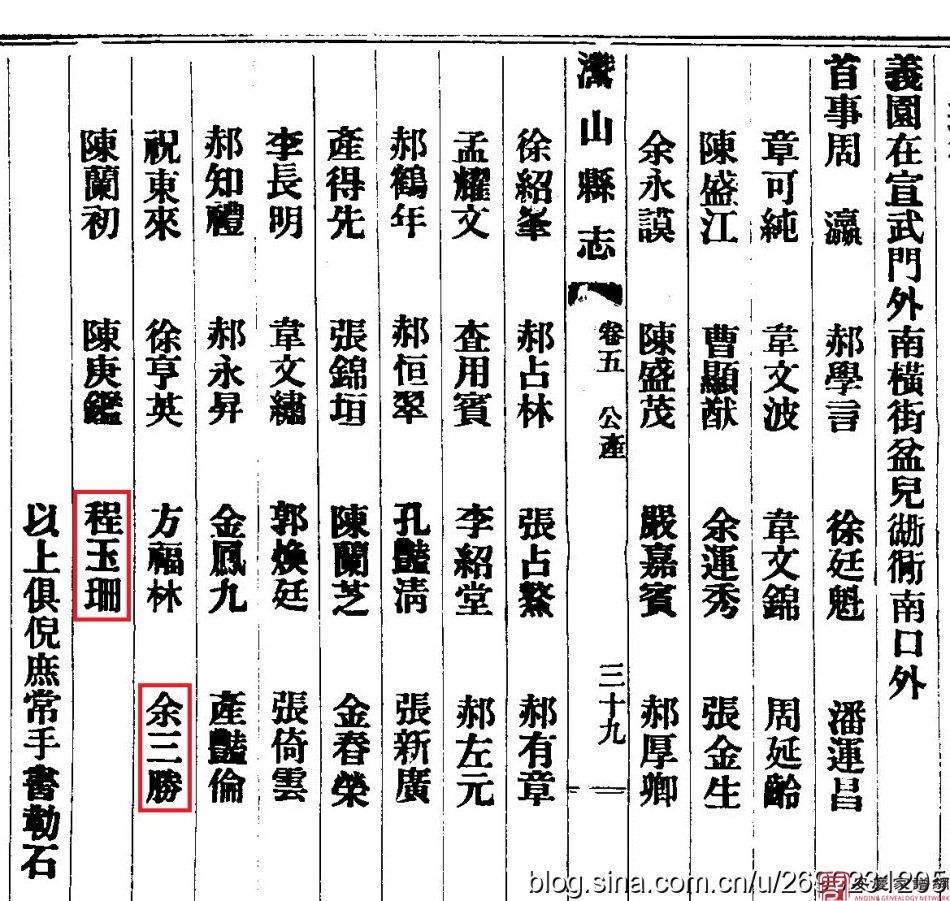 義園在宣武門外南橫街盆兒衚衕南口外
首事周 瀛 郝學言 徐廷魁 潘運昌
章可純 韋文波 韋文錦 周延齡
陳盛江 曹顯猷 余運秀 張金生
余永謨 陳盛茂 嚴嘉賓 郝厚卿
灊山縣志 卷五 公產 三十九
徐紹峯 郝占林 張占鰲 郝有章
孟耀文 查用賓 李紹堂 郝左元
郝鶴年 郝恒翠 孔豔清 張新廣
產得先 張錦垣 陳蘭芝 金春榮
李長明 韋文繡 郭煥廷 張倚雲
郝知禮 郝永昇 金鳳九 產豔倫
祝東來 徐亨英 方福林 余三勝
陳蘭初 陳庚鑑 程玉珊
以上俱倪庶常手書勒石
blog.sina.com.cn/u/26
安慶家譜網
ANQING GENEALOGY NETWORK